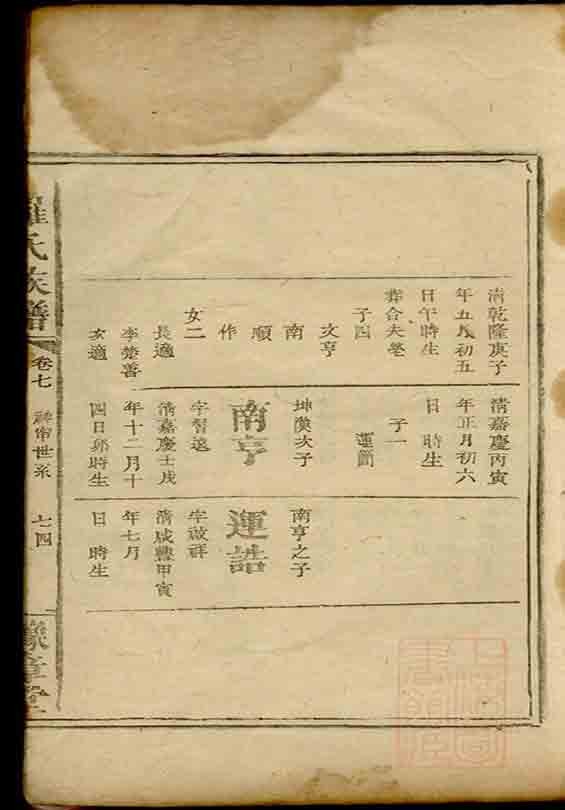 清乾隆庚子
年五月初五
日午時生
葬合夫塋
子四
文亨
南
順
作
女二
長適
李楚善
次適
清嘉慶丙寅
年正月初六
日 時生
子一
運簡
坤漢次子
南亨
字習遠
清嘉慶壬戌
年十二月十
四日卯時生
南亨之子
運誥
字啟祥
清咸豐甲寅
年七月
日 時生
羅氏族譜
卷七
世系
七四
豫章堂
上海圖書館藏